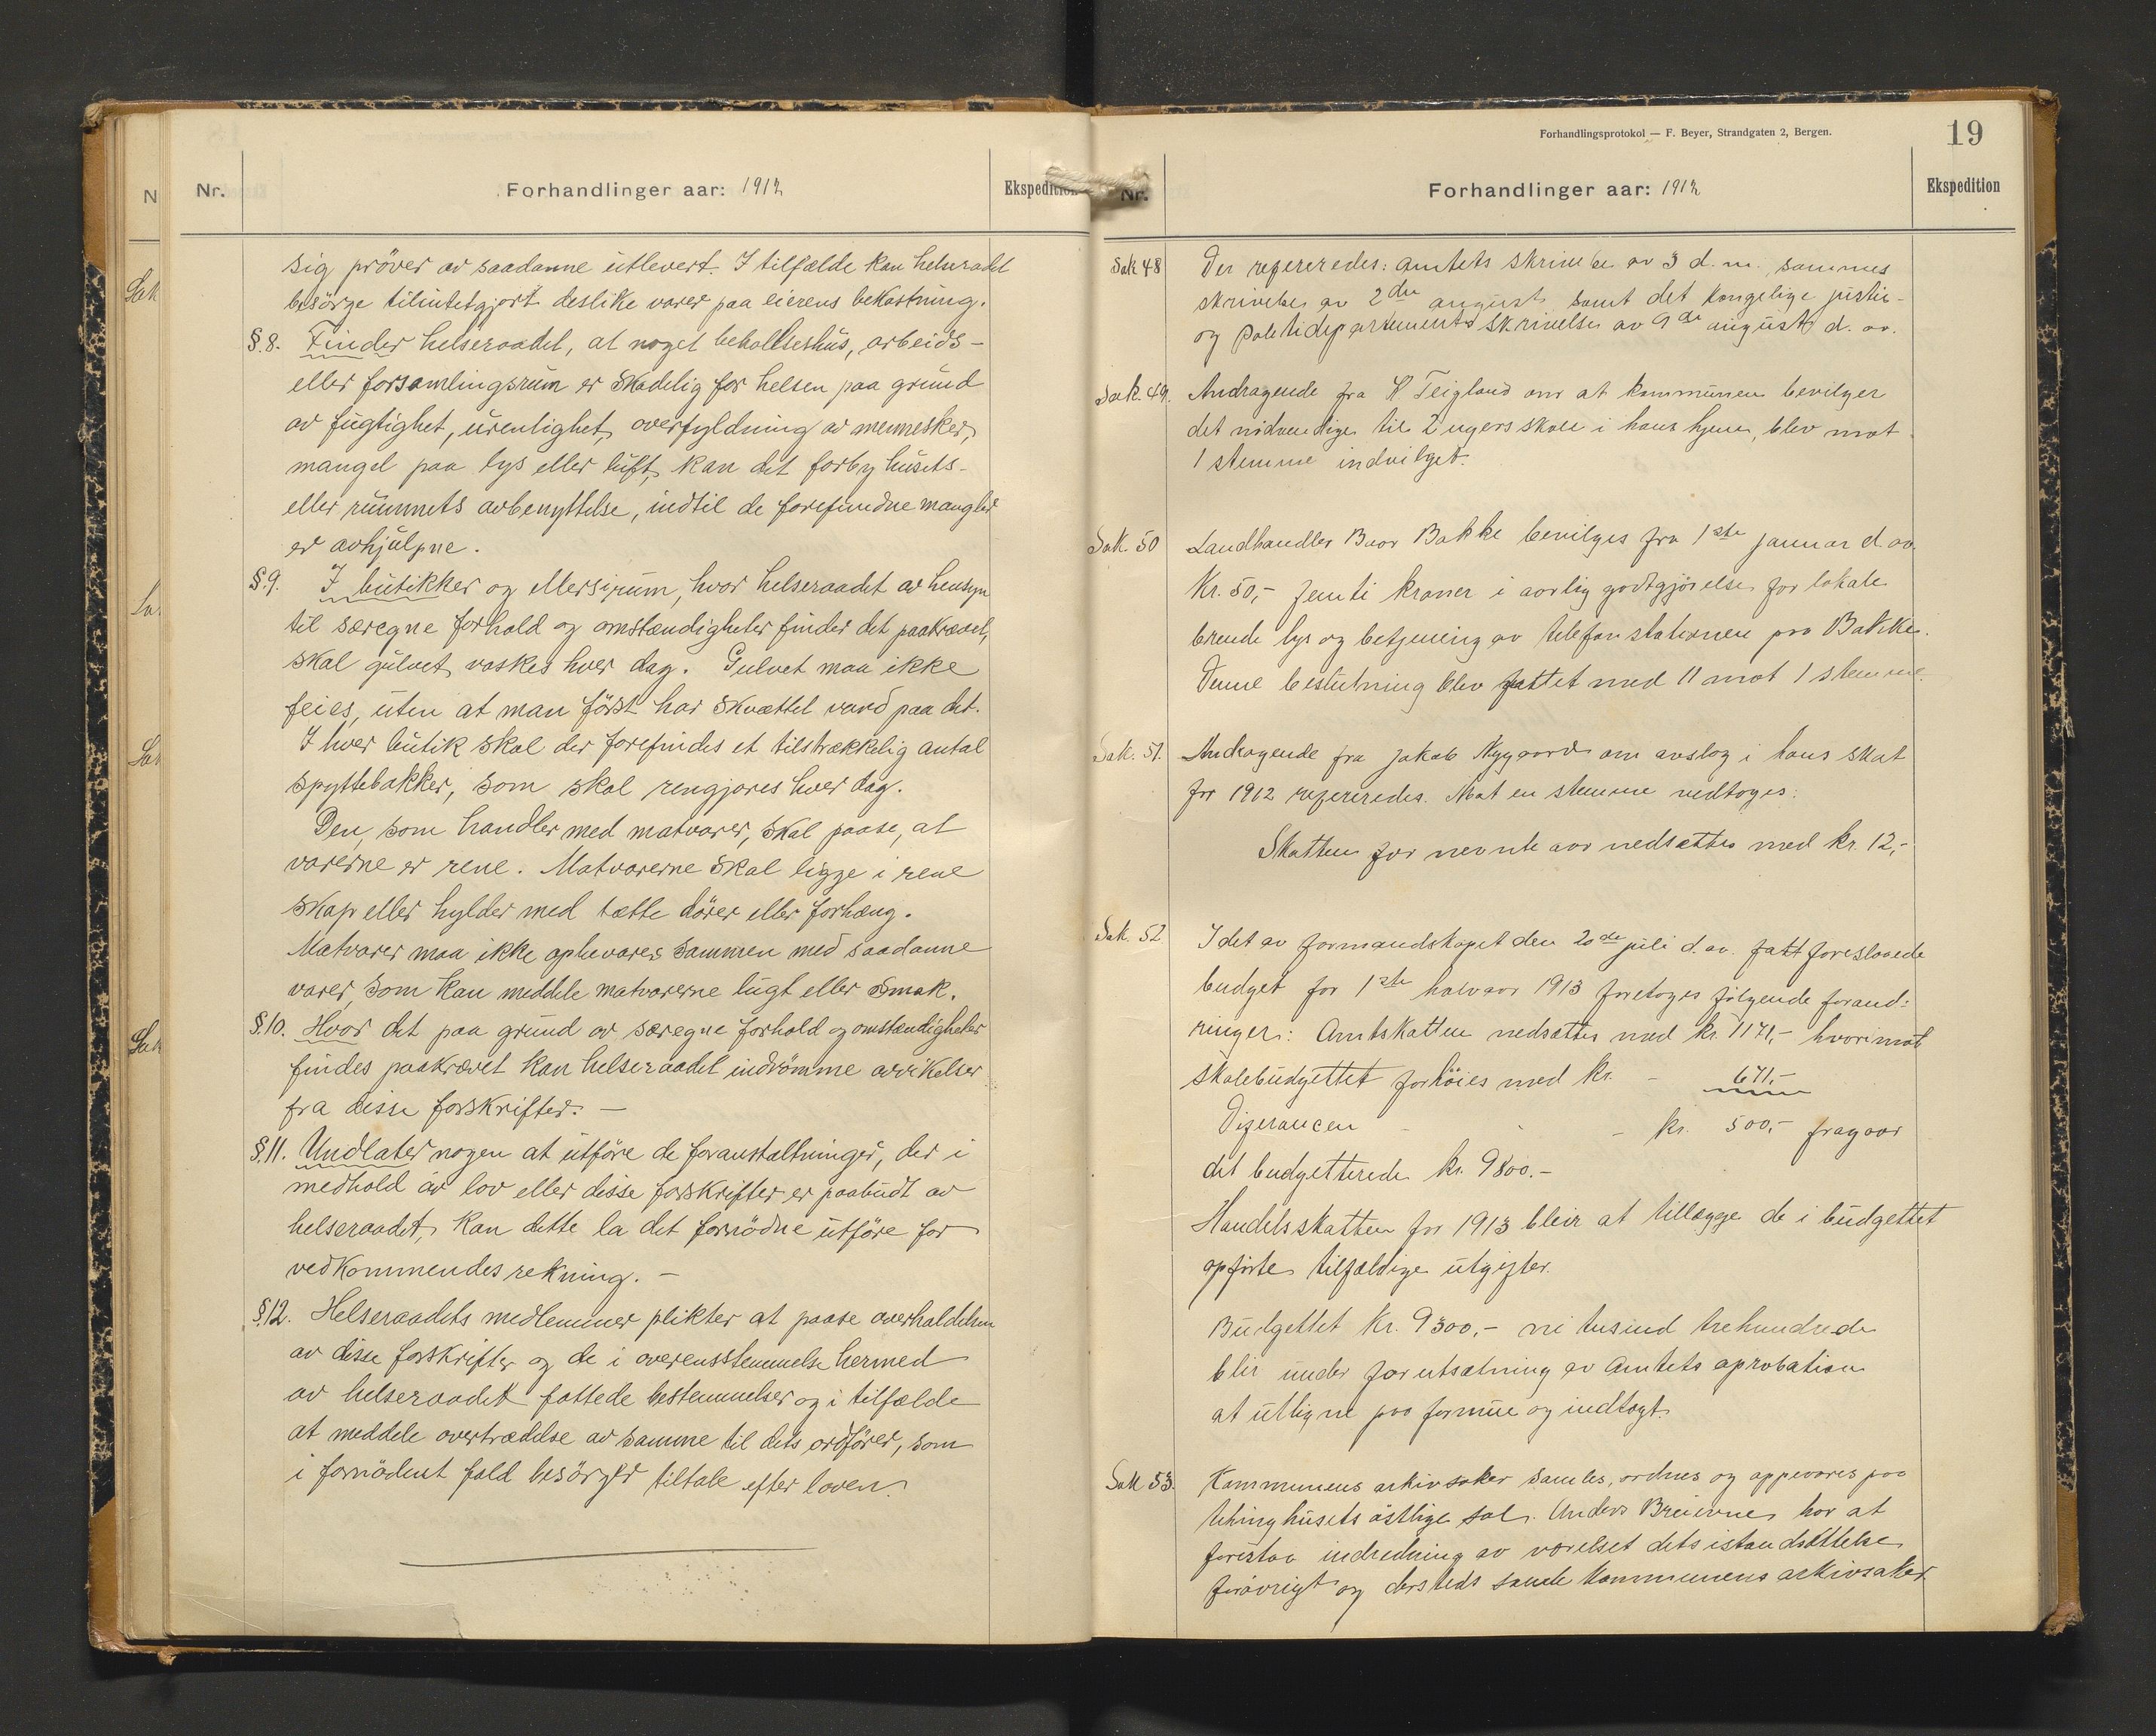 Nr.
Forhandlinger aar: 1912
Ekspedition
sig pröver av saadanne utlevert. I tilfælde kan helseraadet
besörge tilintetgjort deslike varer paa eierens bekostning.
§.8. Finder helseraadet, at noget beboelseshus, arbeids-
eller forsamlingsrum er skadelig for helsen paa grund
av fugtighet, urenlighet, overfyldning av mennesker,
mangel paa lys eller luft, kan det forby husets-
eller rummets avbenyttelse, indtil de forefundne mangler
er avhjulpne.
§.9. I butikker og ellers i rum, hvor helseraadet av hensyn
til særegne forhold og omstændigheter finder det paakrævet,
skal gulvet vaskes hver dag. Gulvet maa ikke
feies, uten at man först har skvættet vand paa det.
I hver butik skal der forefindes et tilstrækkelig antal
spyttebakker, som skal rengjores hver dag.
Den, som handler med matvarer, skal paase, at
varerne er rene. Matvarerne skal ligge i rene
skap eller hylder med tætte dörer eller forhæng.
Matvarer maa ikke opbevares sammen med saadanne
varer, som kan meddele matvarerne lugt eller smak.
§.10. Hvor det paa grund av særegne forhold og omstændigheter
findes paakrævet kan helseraadet indrömme avvikelser
fra disse forskrifter. —
§.11. Undlater nogen at utföre de foranstaltninger, der i
medhold av lov eller disse forskrifter er paabudt av
helseraadet, kan dette la det fornödne utföre for
vedkommendes rekning. —
§.12. Helseraadets medlemmer plikter at paase overholdelsen
av disse forskrifter og de i overensstemmelse hermed
av helseraadet fattede bestemmelser og i tilfælde
at meddele overtrædelse av samme til dets ordförer, som
i fornödent fald besörger tiltale efter loven.
Forhandlingsprotokol — F. Beyer, Strandgaten 2, Bergen.
19
Nr.
Forhandlinger aar: 1912
Ekspedition
Sak 48 Der refereredes: amtets skrivelse av 3 d.m., sammes
skrivelse av 2den august samt det kongelige justis-
og politidepartements skrivelse av 9de august d. aa.
Sak. 49. Andragende fra K Teigland om at kommunen bevilger
det nödvendige til 2 ugers skole i hans hjem, blev mot
1 stemme indvilget.
Sak. 50 Landhandler Baar Bakke bevilges fra 1ste januar d. aa.
Kr. 50,- femti kroner i aarlig godtgjörelse for lokale
brende lys og betjening av telefonstationen paa Bakke.
Denne beslutning blev fattet med 11 mot 1 stemme.
Sak. 51. Andragende fra Jakob Nygaard om avslag i hans skat
for 1912 refereredes. Mot en stemme vedtoges:
Skatten for nevnte aar nedsættes med kr. 12,-
Sak. 52 I det av formandskapet den 20de juli d. aa. fatt foreslaaede
budget for 1ste halvaar 1913 foretoges fölgende forand:
ringer: Amtskatten nedsættes med kr. 1171,- hvorimot
skolebudgettet forhöies med kr. - 671,-
Diferancen - - - kr. 500,- fragaar
det budgetterede kr. 9800.-
Handelsskatten for 1913 bleir at tillægge de i budgettet
opförte tilfældige utgifter.
Budgettet Kr. 9300,- ni tusind trehundrede
blir under forutsætning av Amtets aprobation
at utligne paa formue og indtægt.
Sak 53. Kommunens arkivsaker samles, ordnes og oppevares paa
tehinghusets östlige sal. Anders Breievne har at
forestaa indredning av værelset dets istandsættelse
forövrigt og dersteds samle kommunens arkivsaker